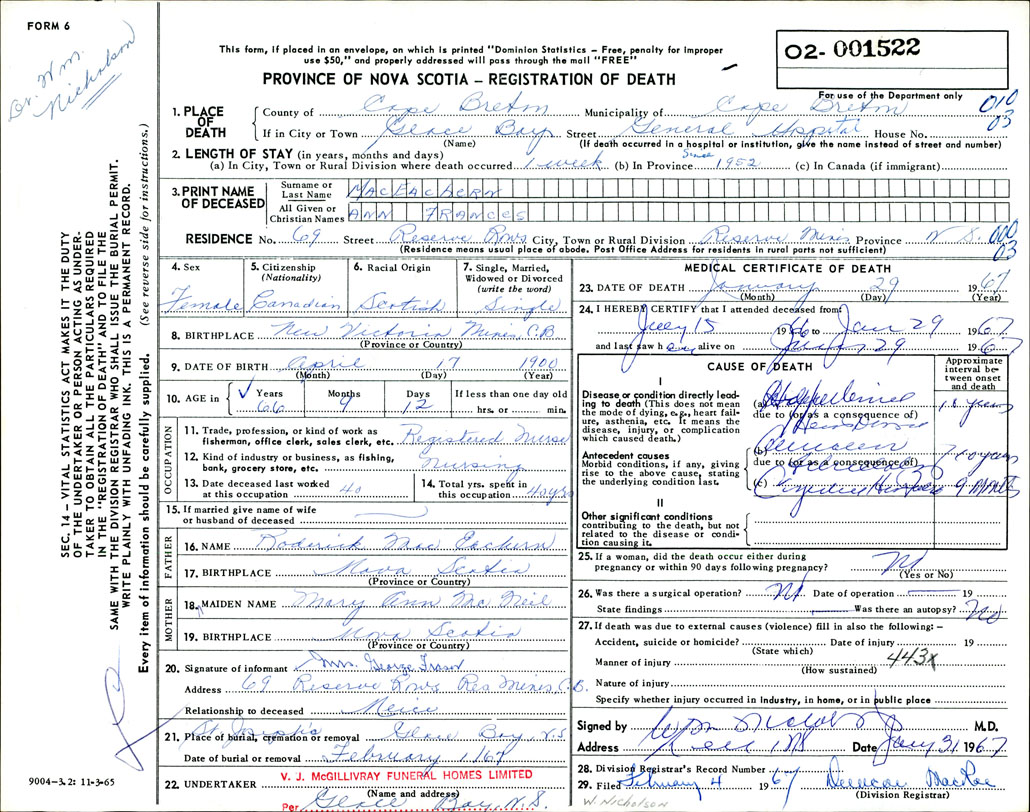 FORM 6
Dr. Wm.
Nicholson
This form, if placed in an envelope, on which is printed "Dominion Statistics – Free, penalty for improper
use $50," and properly addressed will pass through the mail "FREE"
O2- 001522
PROVINCE OF NOVA SCOTIA – REGISTRATION OF DEATH
For use of the Department only
1. PLACE OF DEATH
County of Cape Breton Municipality of Cape Breton 010
03
If in City or Town Glace Bay Street General Hospital House No.
(Name) (If death occurred in a hospital or institution, give the name instead of street and number)
2. LENGTH OF STAY (in years, months and days)
(a) In City, Town or Rural Division where death occurred 1 week (b) In Province Since 1952 (c) In Canada (if immigrant)
3. PRINT NAME OF DECEASED
Surname or Last Name MACEACHERN
All Given or Christian Names ANN FRANCES
RESIDENCE No. 69 Street Reserve Rows City, Town or Rural Division Reserve Mines Province N S. 000
03
(Residence means usual place of abode. Post Office Address for residents in rural parts not sufficient)
4. Sex
Female
5. Citizenship (Nationality)
Canadian
6. Racial Origin
Scotish
7. Single, Married, Widowed or Divorced (write the word)
Single
8. BIRTHPLACE New Victoria Mines, C.B.
(Province or Country)
9. DATE OF BIRTH April 17 1900
(Month) (Day) (Year)
10. AGE in Years Months Days If less than one day old
66 9 12 hrs. or min.
OCCUPATION
11. Trade, profession, or kind of work as fisherman, office clerk, sales clerk, etc. Registered Nurse
12. Kind of industry or business, as fishing, bank, grocery store, etc. Nursing
13. Date deceased last worked at this occupation 40
14. Total yrs. spent in this occupation 40 yrs
15. If married give name of wife or husband of deceased
FATHER
16. NAME Roderick Mac Eachern
17. BIRTHPLACE Nova Scotia
(Province or Country)
MOTHER
18. MAIDEN NAME Mary Ann Mc Neil
19. BIRTHPLACE Nova Scotia
(Province or Country)
20. Signature of informant Mrs. George
Address 69 Reserve Rows Res Mines, C.B.
Relationship to deceased Neice
21. Place of burial, cremation or removal St Joseph's Glace Bay N.S.
Date of burial or removal February 1, 1967
22. UNDERTAKER V. J. McGILLIVRAY FUNERAL HOMES LIMITED
(Name and address)
Per Glace Bay, N.S.
MEDICAL CERTIFICATE OF DEATH
23. DATE OF DEATH January 29 1967
(Month) (Day) (Year)
24. I HEREBY CERTIFY that I attended deceased from
July 15 1966 to Jan 29 1967
and last saw her alive on Jan 29 1967
CAUSE OF DEATH
Approximate interval between onset and death
I
Disease or condition directly leading to death (This does not mean the mode of dying, e.g., heart failure, asthenia, etc. It means the disease, injury, or complication which caused death.)
(a)
due to (or as a consequence of)
Antecedent causes
Morbid conditions, if any, giving rise to the above cause, stating the underlying condition last.
(b)
due to (or as a consequence of)
(c)
II
Other significant conditions contributing to the death, but not related to the disease or condition causing it.
25. If a woman, did the death occur either during pregnancy or within 90 days following pregnancy? No
(Yes or No)
26. Was there a surgical operation? No Date of operation 19
State findings Was there an autopsy? No
27. If death was due to external causes (violence) fill in also the following:–
Accident, suicide or homicide? Date of injury 19
(State which)
Manner of injury 443X
(How sustained)
Nature of injury
Specify whether injury occurred in Industry, in home, or in public place
Signed by M.D.
Address Date Jan 31 1967
28. Division Registrar's Record Number
29. Filed February 4 1967 Duncan MacRae
(Division Registrar)
W. Nicholson
SEC. 14 – VITAL STATISTICS ACT MAKES IT THE DUTY
OF THE UNDERTAKER OR PERSON ACTING AS UNDER-
TAKER TO OBTAIN ALL THE PARTICULARS REQUIRED
IN THE "REGISTRATION OF DEATH" AND TO FILE THE
SAME WITH THE DIVISION REGISTRAR WHO SHALL ISSUE THE BURIAL PERMIT.
WRITE PLAINLY WITH UNFADING INK. THIS IS A PERMANENT RECORD.
Every item of information should be carefully supplied. (See reverse side for instructions.)
9004–3.2: 11-3-65